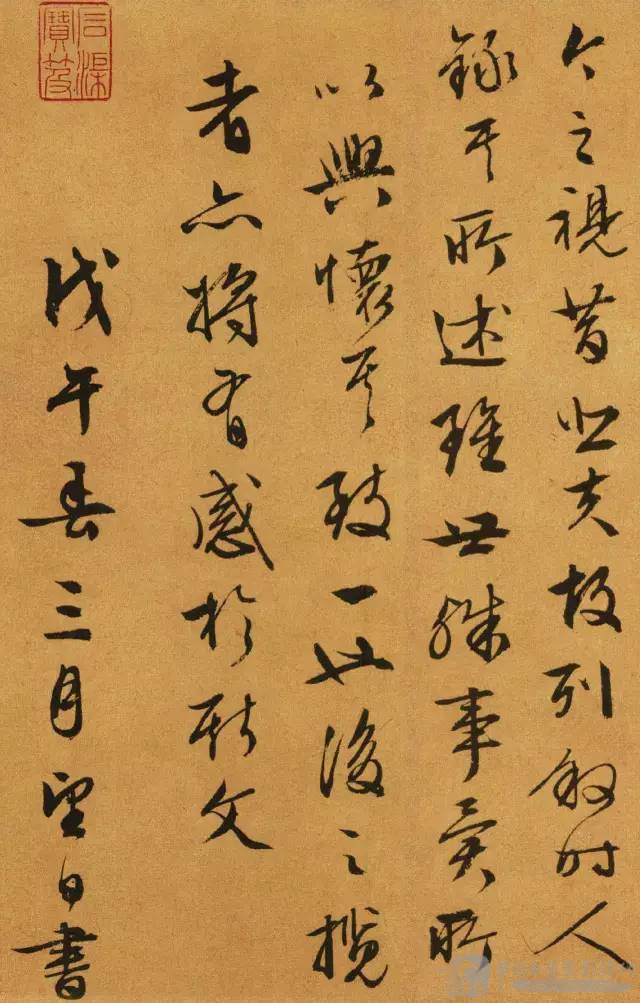 今之視昔悲夫故列敘時人
錄其所述雖世殊事異所
以興懷其致一也後之攬
者亦將有感於斯文
戊午春三月望日書
石渠寶笈